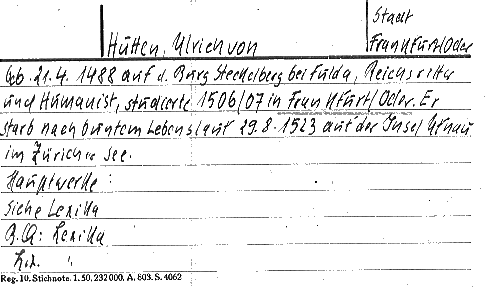 Stadt
Hutten, Ulrich von Frankfurt/Oder
Geb. 21.4.1488 auf d. Burg Steckelberg bei Fulda, Reichsritter
und Humanist, studierte 1506/07 in Frankfurt/Oder. Er
starb nach buntem Lebenslauf 29.8.1523 auf der Insel Ufnau
im Züricher See.
Hauptwerke:
Siehe Lexika
Q.Q: Lexika
Lit. "
Reg. 10. Stichnote. 1. 50. 232 000. A. 803. S. 4062